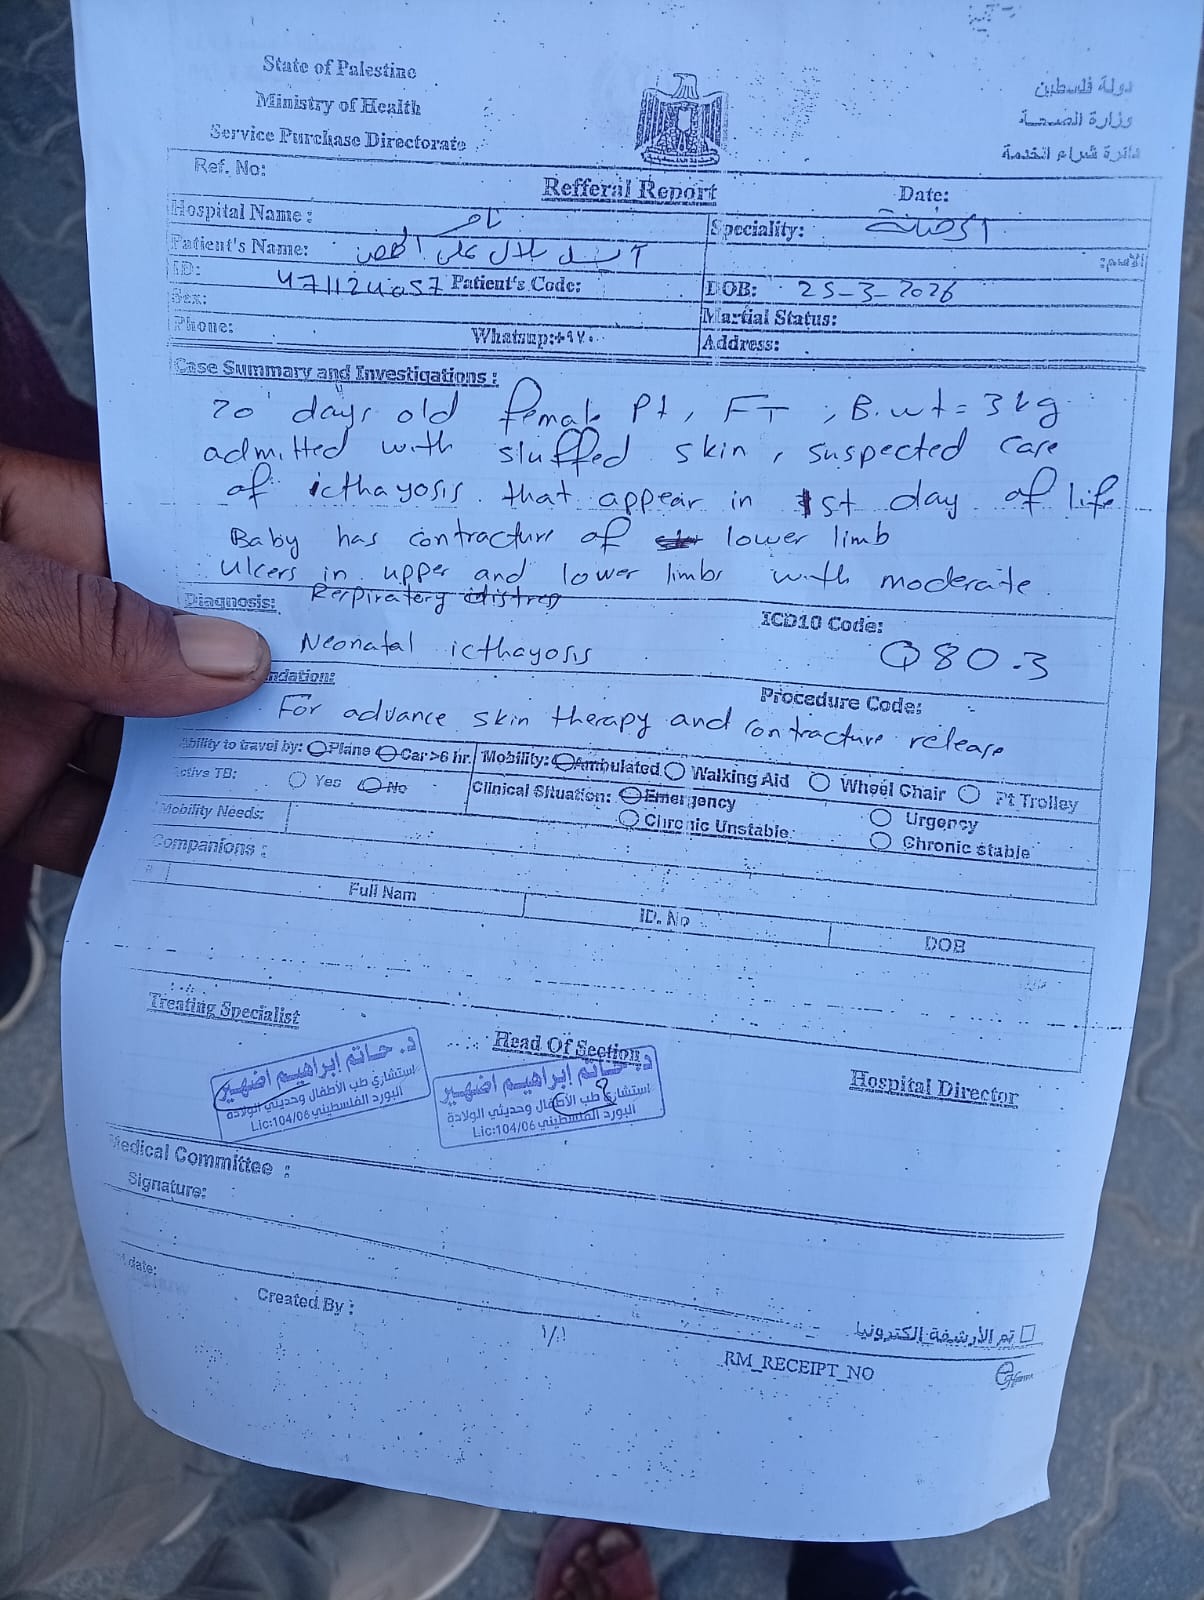 State of Palestine
Ministry of Health
Service Purchase Directorate
دولة فلسطين
وزارة الصحة
دائرة شراء الخدمة
Ref. No:
Refferal Report
Date:
Hospital Name : ناصر
Speciality: الحضانة
Patient's Name: بلال علي
القسم:
ID: Patient's Code:
DOB: 25-3-2026
Sex:
Martial Status:
Phone: Whatsup:+٩٧٠٠
Address:
Case Summary and Investigations :
20 days old female Pt, FT, B.wt = 3 kg
admitted with sluffed skin, suspected case
of icthayosis that appear in 1st day of life
Baby has contracture of lower limb
Ulcers in upper and lower limbs with moderate
Respiratory distress
Diagnosis:
ICD10 Code:
Neonatal icthayosis
Q80.3
ndation:
Procedure Code:
For advance skin therapy and contracture release
Ability to travel by: Plane Car>6 hr. Mobility: Ambulated Walking Aid Wheel Chair Pt Trolley
Active TB: Yes No Clinical Situation: Emergency Urgency
Chronic Unstable Chronic stable
Mobility Needs:
Companions :
# Full Nam ID. No DOB
Treating Specialist
Head Of Section
Hospital Director
د. حاتم إبراهيم اضهير
استشاري طب الأطفال وحديثي الولادة
البورد الفلسطيني
Lic:104/06
د. حاتم إبراهيم اضهير
استشاري طب الأطفال وحديثي الولادة
البورد الفلسطيني
Lic:104/06
Medical Committee :
Signature:
date:
Created By :
١/١
تم الأرشفة إلكترونيا
RM_RECEIPT_NO